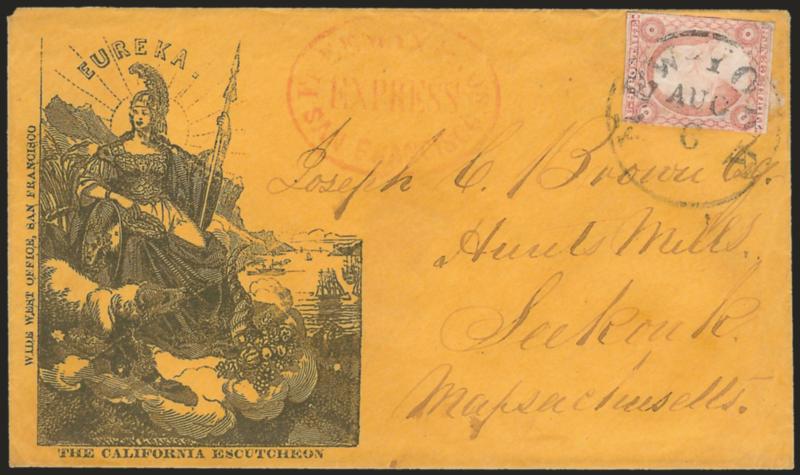 EUREKA.
WIDE WEST OFFICE, SAN FRANCISCO
THE CALIFORNIA ESCUTCHEON
EXPRESS
SAN FRANCISCO
POSTAGE
NEW-YORK
AUG
6
Joseph C. Brown Esq.
Hunts Mills.
Seekonk.
Massachusetts.